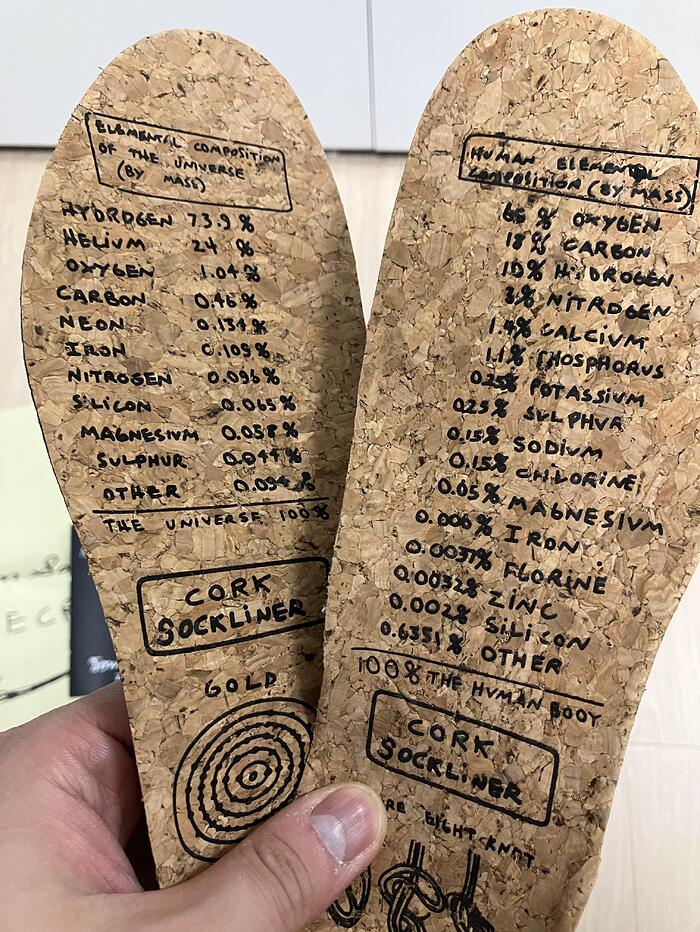 ELEMENTAL COMPOSITION
OF THE UNIVERSE
(BY MASS)
HYDROGEN 73.9%
HELIUM 24 %
OXYGEN 1.04%
CARBON 0.46%
NEON 0.134%
IRON 0.109%
NITROGEN 0.096%
SILICON 0.065%
MAGNESIUM 0.058%
SULPHUR 0.044%
OTHER
THE UNIVERSE 100%
CORK
SOCKLINER
GOLD
HUMAN ELEMENTAL
COMPOSITION (BY MASS)
65 % OXYGEN
18% CARBON
10% HYDROGEN
3% NITROGEN
1.4% CALCIUM
1.1% PHOSPHORUS
0.25% POTASSIUM
0.25% SULPHUR
0.15% SODIUM
0.15% CHLORINE
0.05% MAGNESIUM
0.006% IRON
0.0037% FLORINE
0.0032% ZINC
0.002% SILICON
0.6351% OTHER
100% THE HUMAN BODY
CORK
SOCKLINER
RE EIGHT KNOT